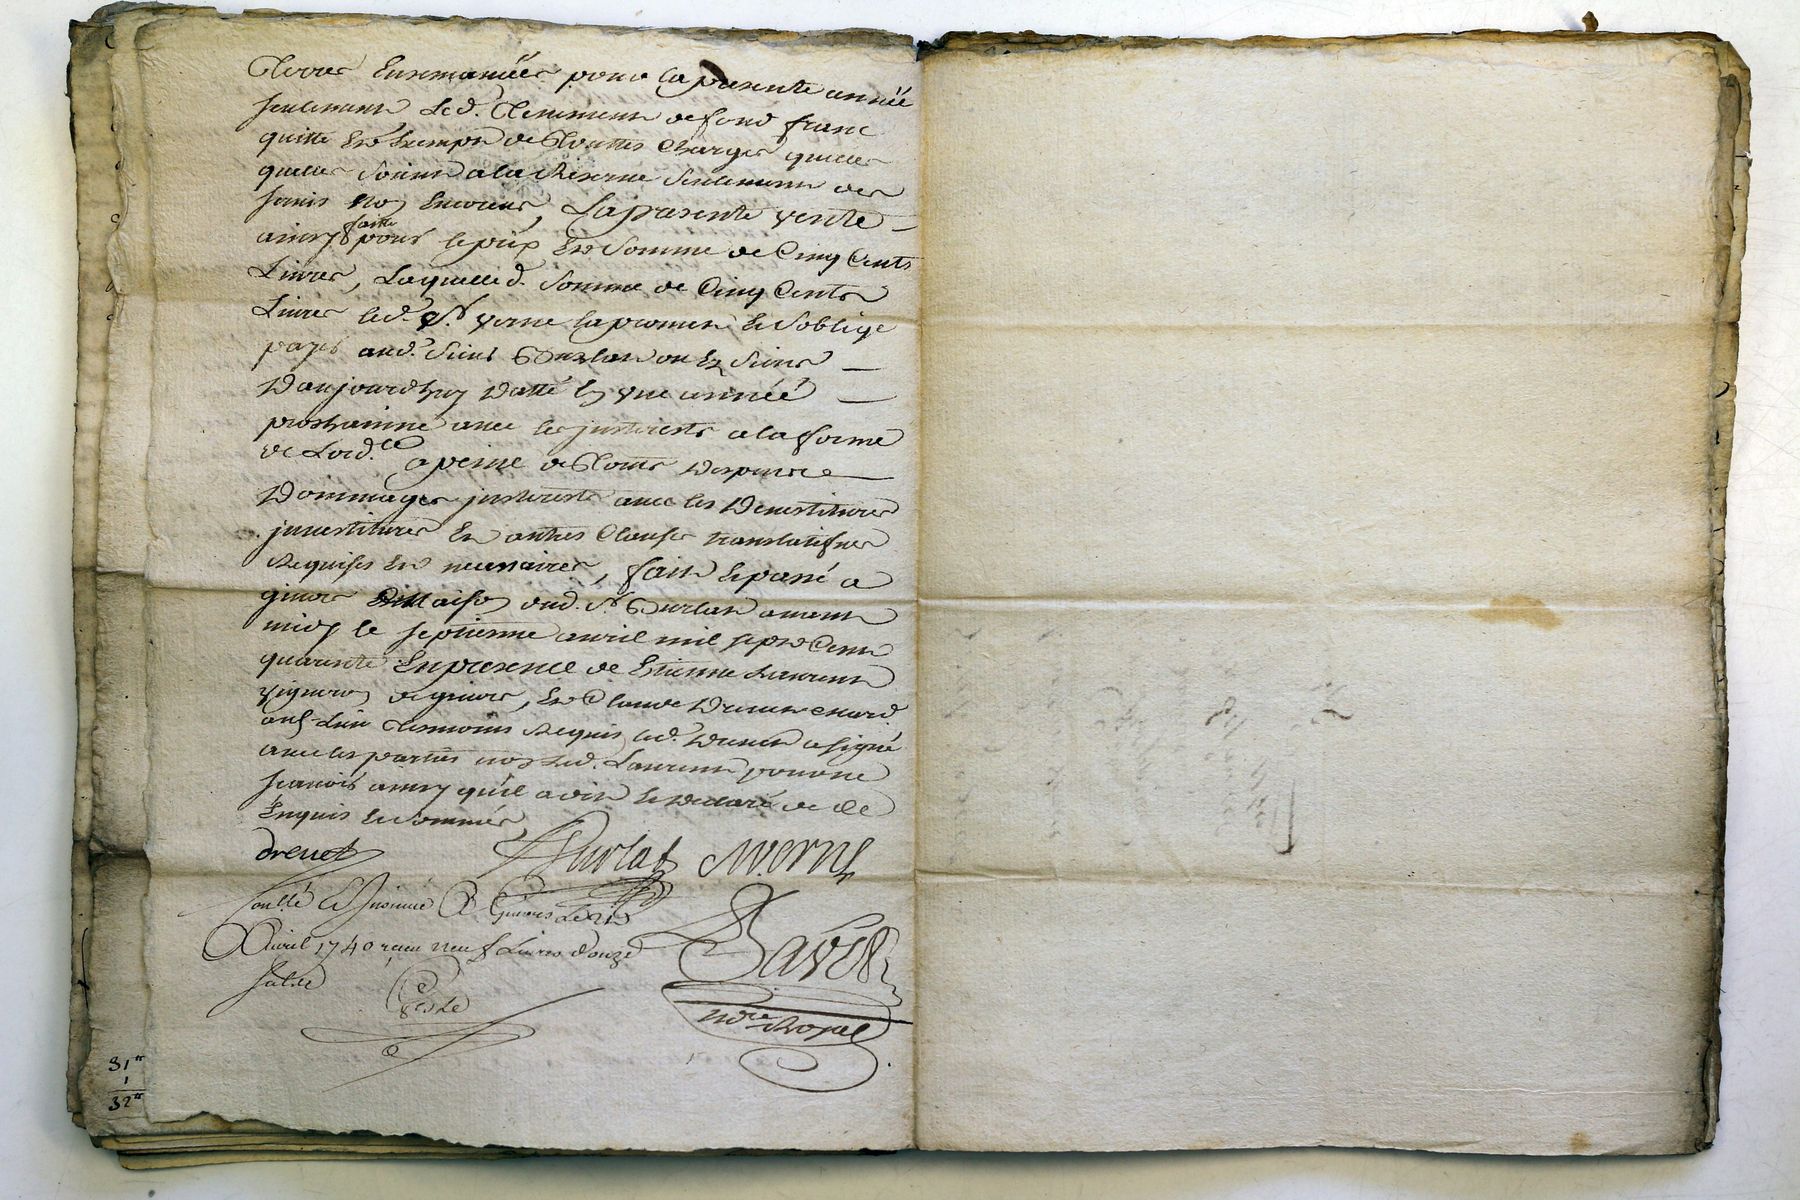 Terres Ensemancées pour la presente année
seulement led. Tennement de fond franc
quitte Et Exempt de Touttes Charges quelles
quelles soient a la Reserve seulement des
servis no Encourus, La presente vente
ainsy faitte pour le prix Et Somme de Cinq Cents
Livres, Laquelle d. Somme de Cinq Cents
Livres led. Sr. verne la promet Et Soblige
payer aud. Sieur Burlat ou Es Siens
Daujourdhuy Datté En vne année
prochainne avec les jnterests a la forme
de Lord.ce a peine de Touts Despens
Dommages jnterests avec les Devestitures
jnvestitures Et autres Clauses translatifues
Requises Et necessaires, fait Et passé a
givors Maison dud. Sr. Burlat avant
midy le septieme avril mil sept Cent
quarente En presence de Etienne Laurent
vigneron de givors, Et Claude Drevet
Tesmoins Requis led. Drevet a signé
avec les parties non Led. Laurent pour ne
scavoir ainsy quil a dit Et declaré de Ce
Enquis Et Sommés
drevet Burlat M. verne
Conllé Et Jnsinué A Givors Le
Avril 1740 reçu neuf Livres douze
sols
Bavet
Nore Royal
31tt
1
32tt